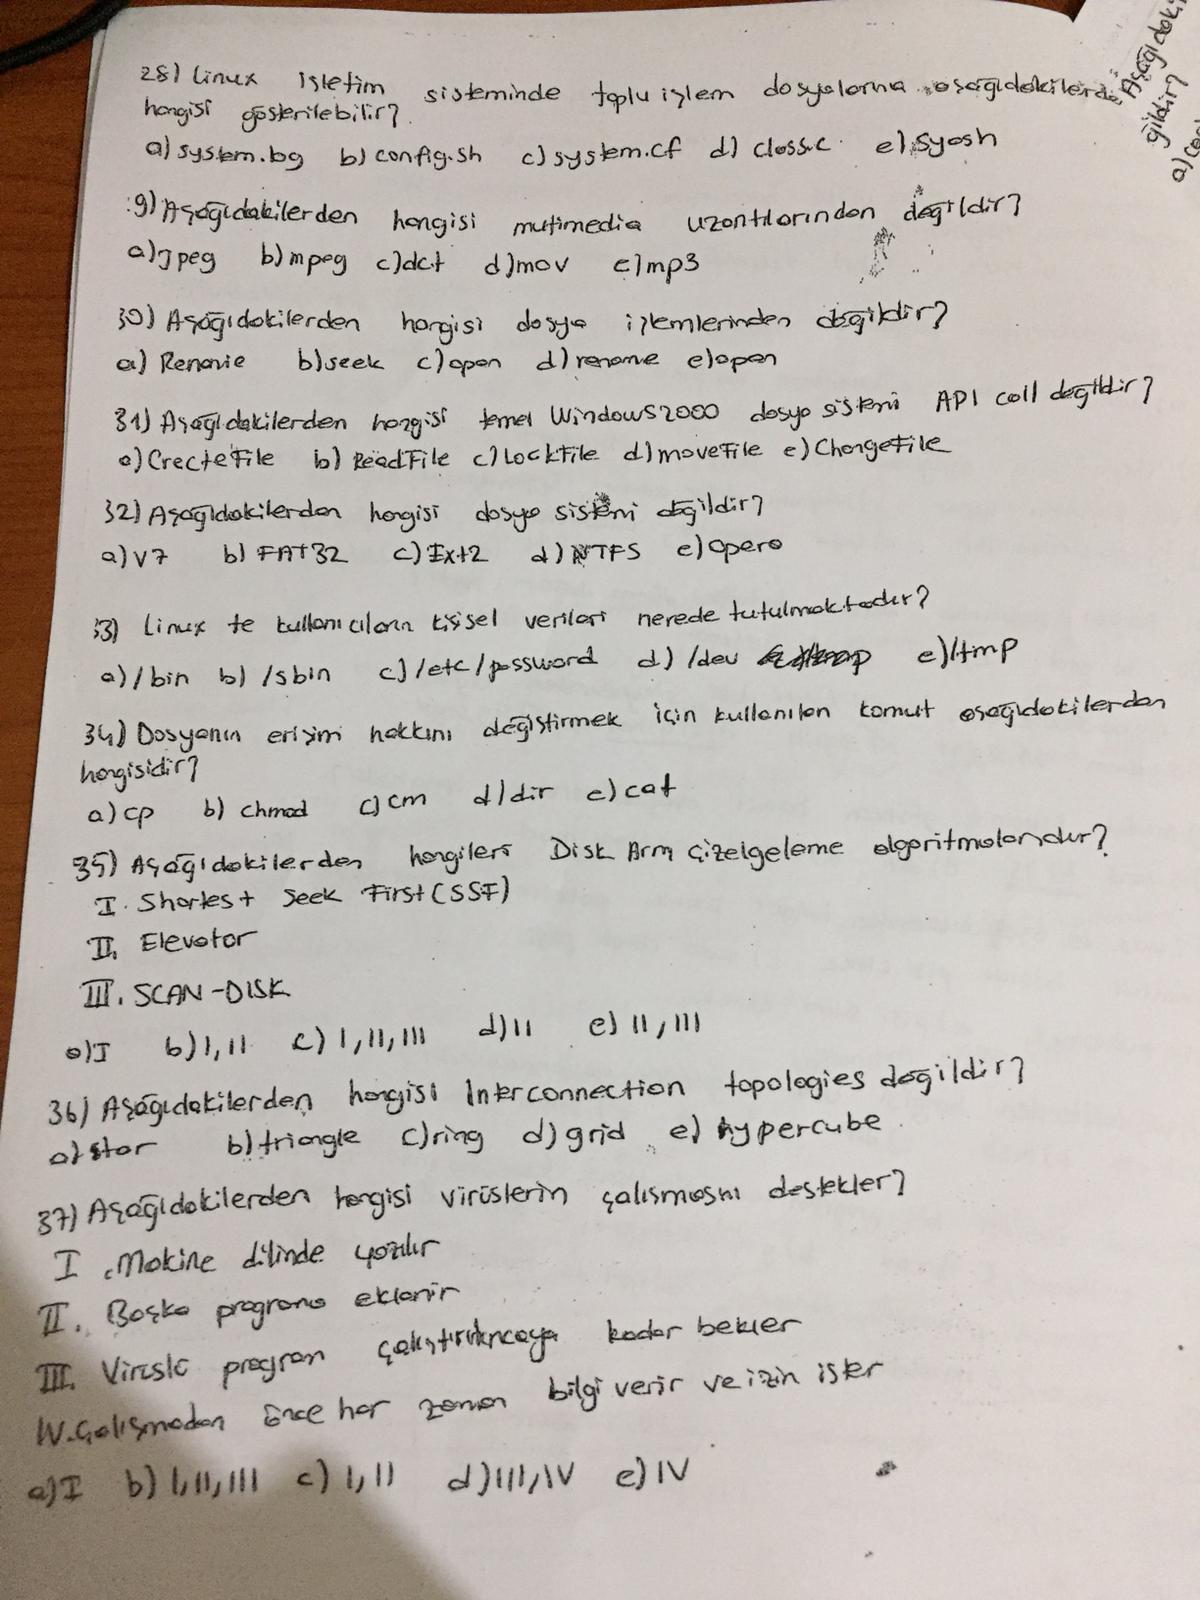 28) Linux işletim sisteminde toplu işlem dosyalarına aşağıdakilerde
hangisi gösterilebilir?
a) system.bg b) config.sh c) system.cf d) class.c e) Syash
9) Aşağıdakilerden hangisi mutimedia uzantılarından değildir?
a) Jpeg b) mpeg c) dct d) mov e) mp3
30) Aşağıdakilerden hangisi dosya işlemlerinden değildir?
a) Renavie b) seek c) open d) rename e) open
31) Aşağıdakilerden hangisi temel Windows2000 dosya sistemi API call değildir?
a) CreateFile b) ReadFile c) LockFile d) moveFile e) ChangeFile
32) Aşağıdakilerden hangisi dosya sistemi değildir?
a) V7 b) FAT32 c) Ext2 d) NTFS e) Opera
33) Linux te kullanıcıların kişisel verileri nerede tutulmaktadır?
a) /bin b) /sbin c) /etc/password d) /dev e) /tmp
34) Dosyanın erişim hakkını değiştirmek için kullanılan komut aşağıdakilerden
hangisidir?
a) cp b) chmod c) cm d) dir e) cat
35) Aşağıdakilerden hangileri Disk Arm çizelgeleme algoritmalarıdır?
I. Shortest Seek First (SSF)
II. Elevator
III. SCAN-DISK
a) I b) I, II c) I, II, III d) II e) II, III
36) Aşağıdakilerden hangisi Interconnection topologies değildir?
a) star b) triangle c) ring d) grid e) hypercube
37) Aşağıdakilerden hangisi virüslerin çalışmasını destekler?
I. Makine dilinde yazılır
II. Başka programa eklenir
III. Virüslü program çalıştırılıncaya kadar bekler
IV. Çalışmadan önce her zaman bilgi verir ve izin ister
a) I b) I, II, III c) I, II d) III, IV e) IV
Aşağıdaki
ğildir?
a)